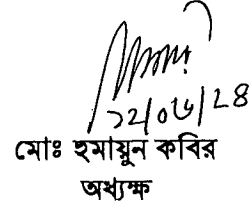 ১২/০৬/২৪
মোঃ হুমায়ুন কবির
অধ্যক্ষ